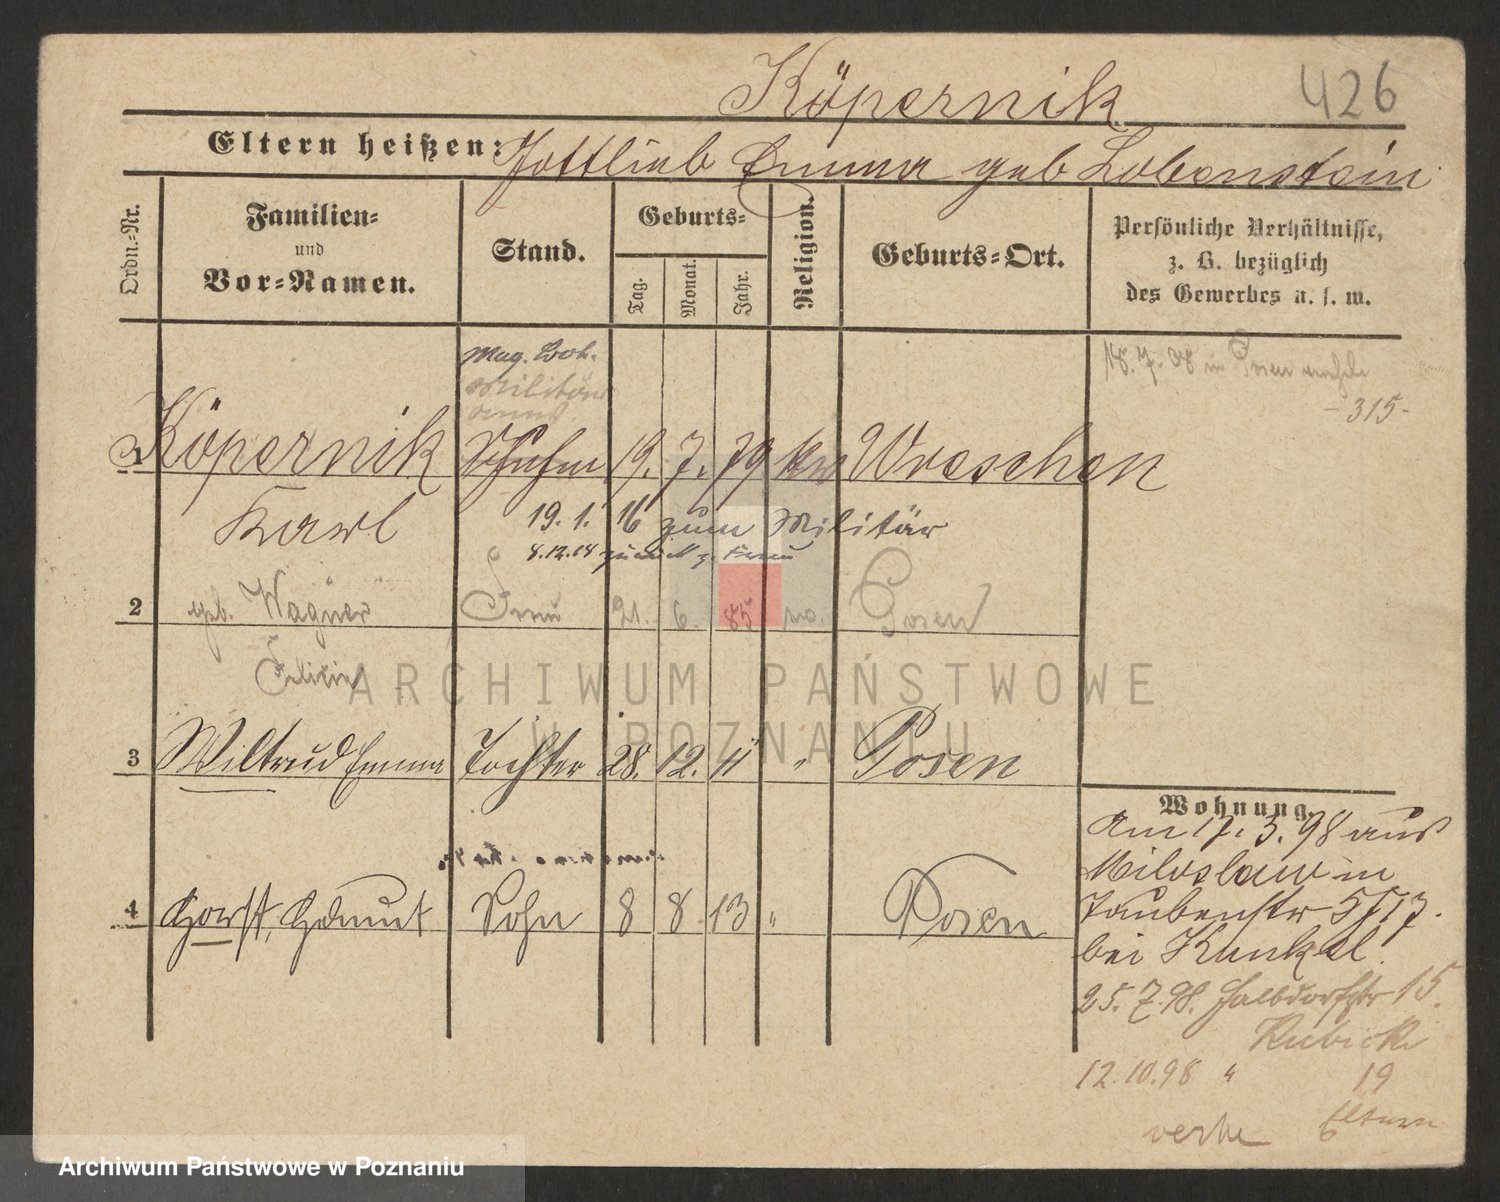 Köpernik
426
Eltern heißen: Gottlieb Emma geb Lobenstein
Ordn.-Nr.
Familien-
und
Vor-Namen.
Stand.
Geburts-
Tag.
Monat.
Jahr.
Religion.
Geburts-Ort.
Persönliche Verhältnisse,
z. B. bezüglich
des Gewerbes u. s. w.
18. 7. 08 in Posen
- 315 -
Militär
1 Köpernik 19. 7. 79 Wreschen
Karl
19. 1. 16 zum Militär
8.12.18 zurück
2 geb. Wagner Frau 21. 6. 85 Posen
3 Wiltrud Emma Tochter 28. 12. 11 " Posen
4 Horst, Helmut Sohn 8 8 13 " Posen
Wohnung.
Am 17. 3. 98 aus
Miloslaw in
Taubenstr 5
bei Kunkel.
25. 7. 98. Halbdorfstr 15.
12. 10. 98 " 19
Eltern
ARCHIWUM PAŃSTWOWE
W POZNANIU
Archiwum Państwowe w Poznaniu